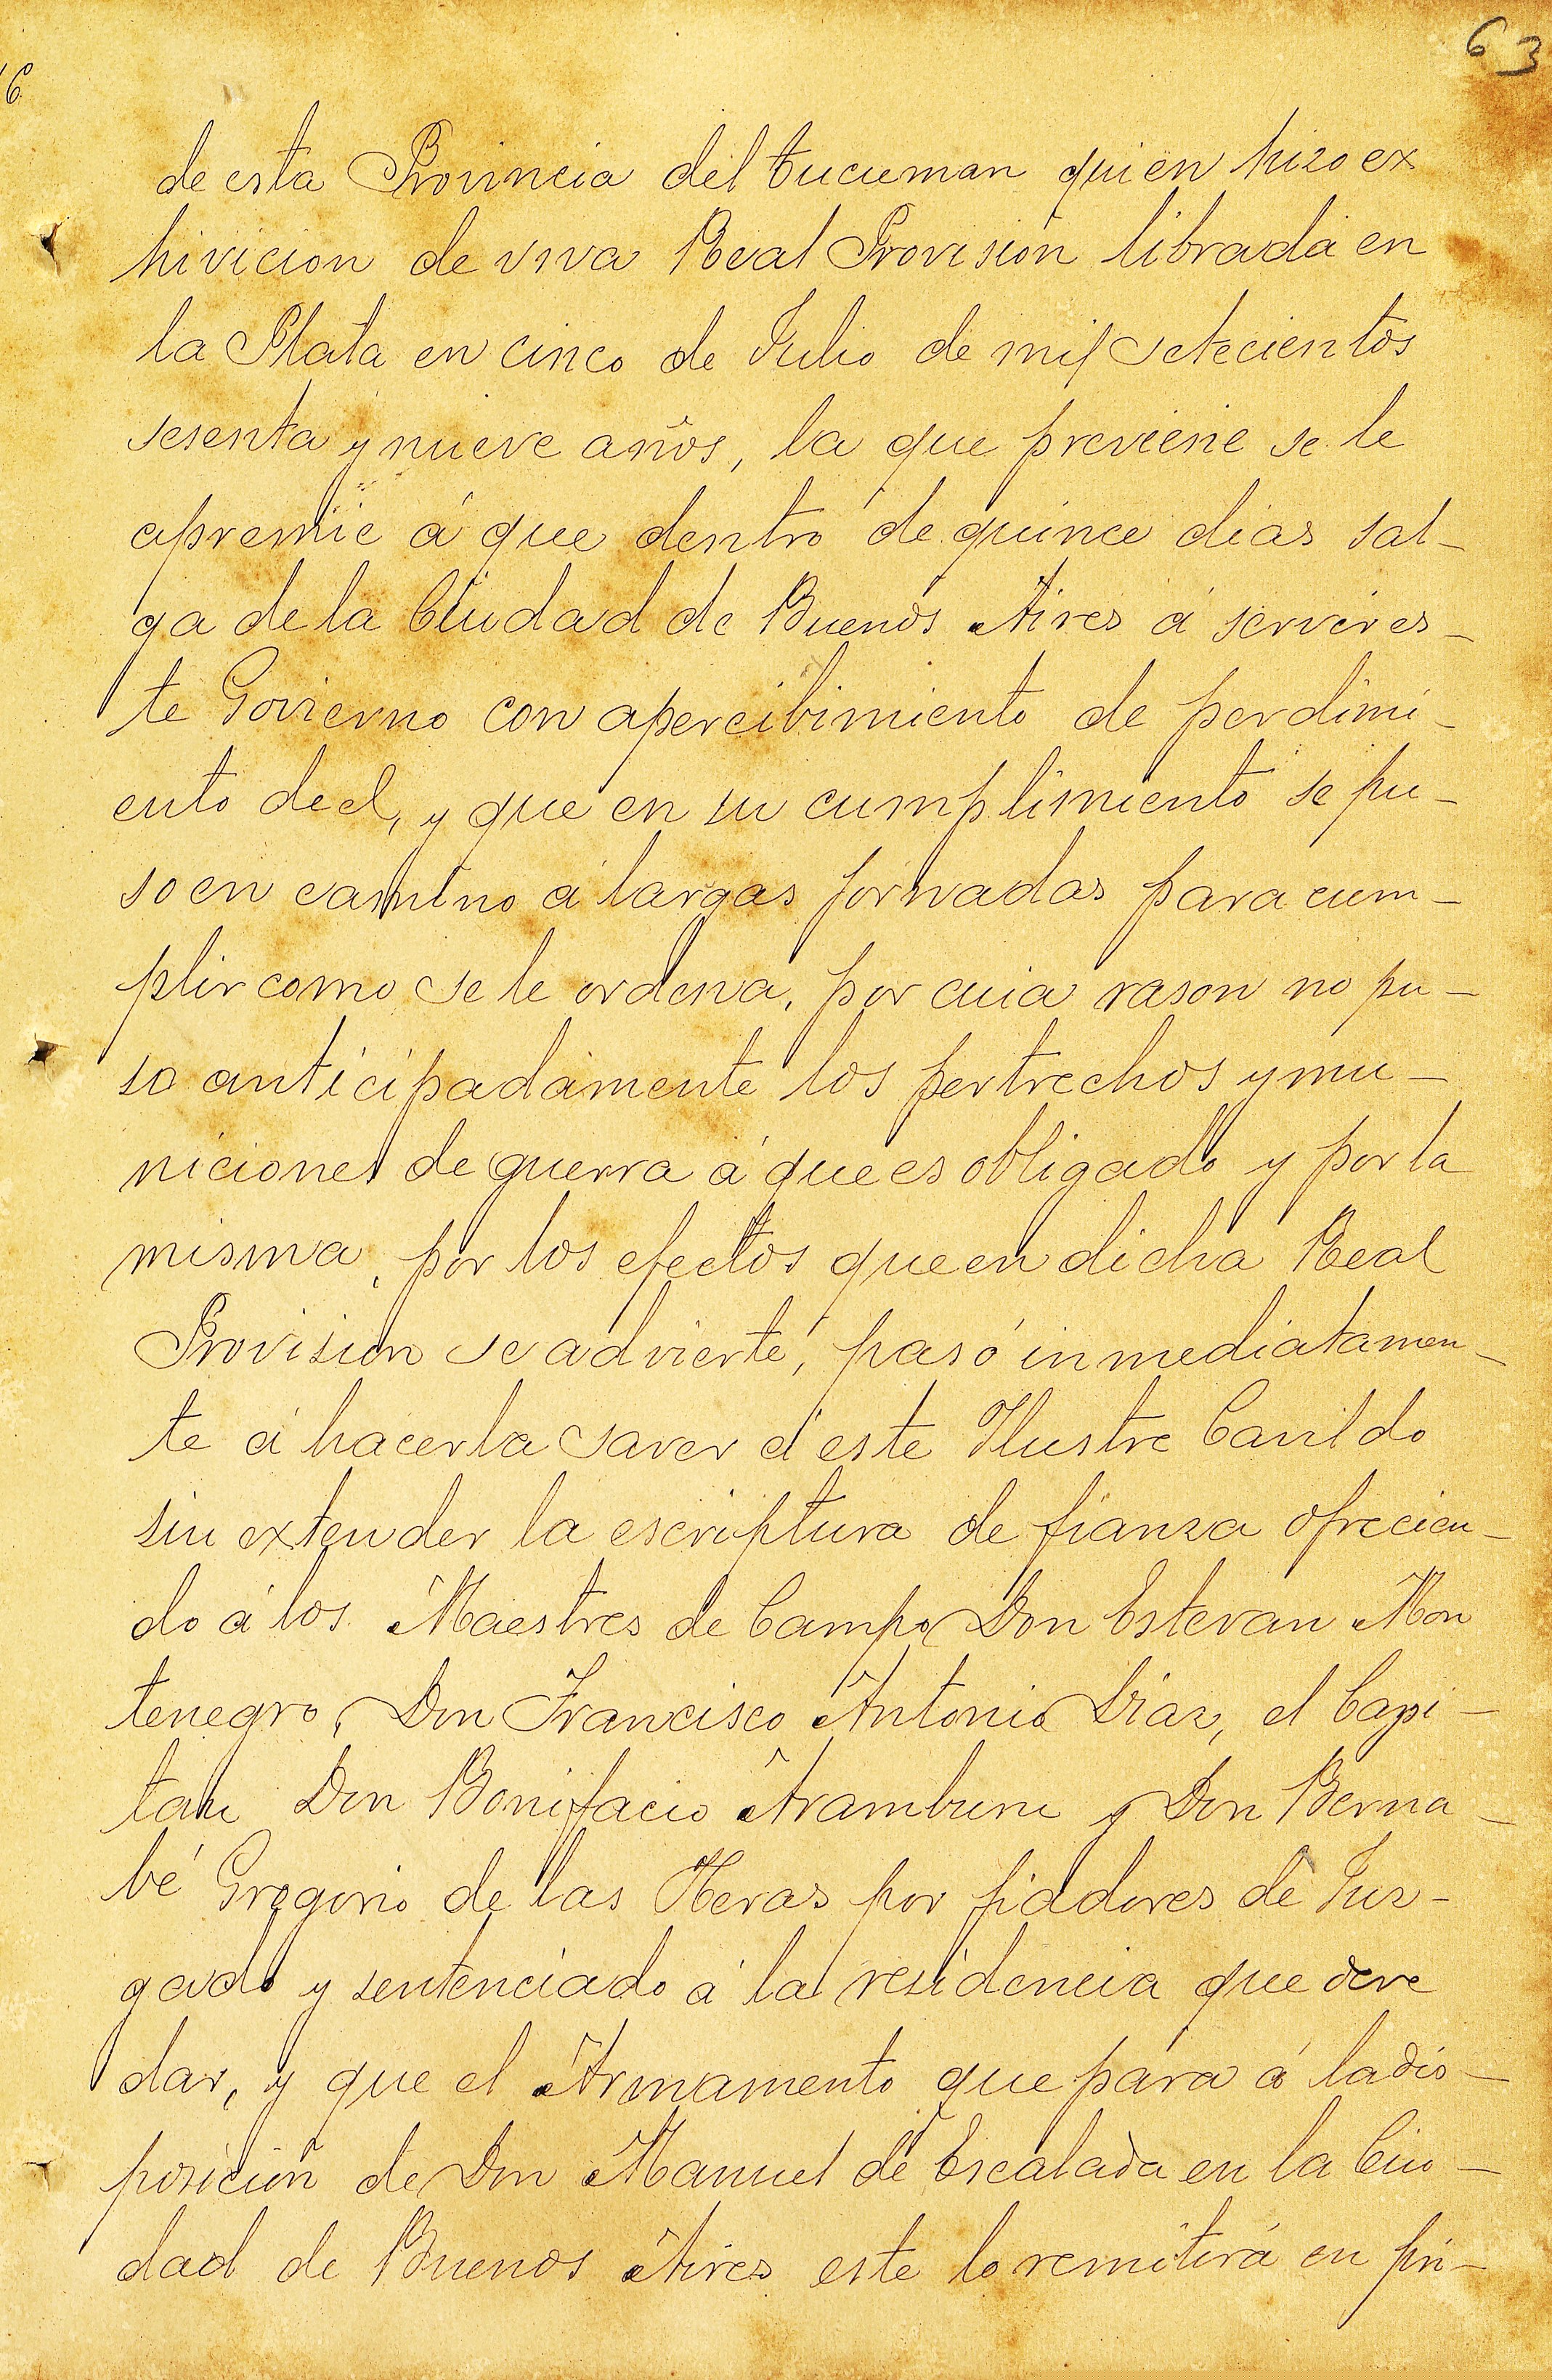 63
de esta Provincia del tucuman quien hizo ex
hivicion de viva Real Provision librada en
la Plata en cinco de Julio de mil setecientos
sesenta y nueve años, la que previene se le
apremie á que dentro de quince dias sal-
ga de la Ciudad de Buenos Aires á servir es-
te Govierno con apercibimiento de perdimi-
ento de el, y que en su cumplimiento se pu-
so en camino á largas jornadas para cum-
plir como se le ordena, por cuia rason no pu-
so anticipadamente los pertrechos y mu-
niciones de guerra á que es obligado y por la
misma, por los efectos que en dicha Real
Provision se advierte, pasó inmediatamen-
te á hacerla saver á este Ilustre Cavildo
sin extender la escriptura de fianza ofrecien-
do á los Maestres de Campo Don Estevan Mon
tenegro, Don Francisco Antonio Diaz, el Capi-
tan Don Bonifacio Aramburu y Don Berna-
bé Gregorio de las Heras por fiadores de Juz-
gado y sentenciado á la residencia que deve
dar, y que el Armamento que para á la dis-
posicion de Don Manuel de Escalada en la Ciu-
dad de Buenos Aires este lo remitirá en pri-